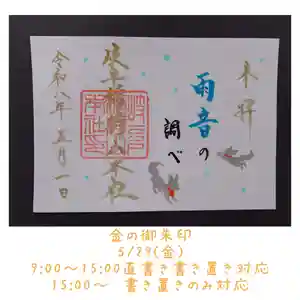 奉拝
雨音の
調べ
令和八年五月一日
金の御朱印
5/29(金)
9:00～15:00直書き書き置き対応
15:00～ 書き置きのみ対応